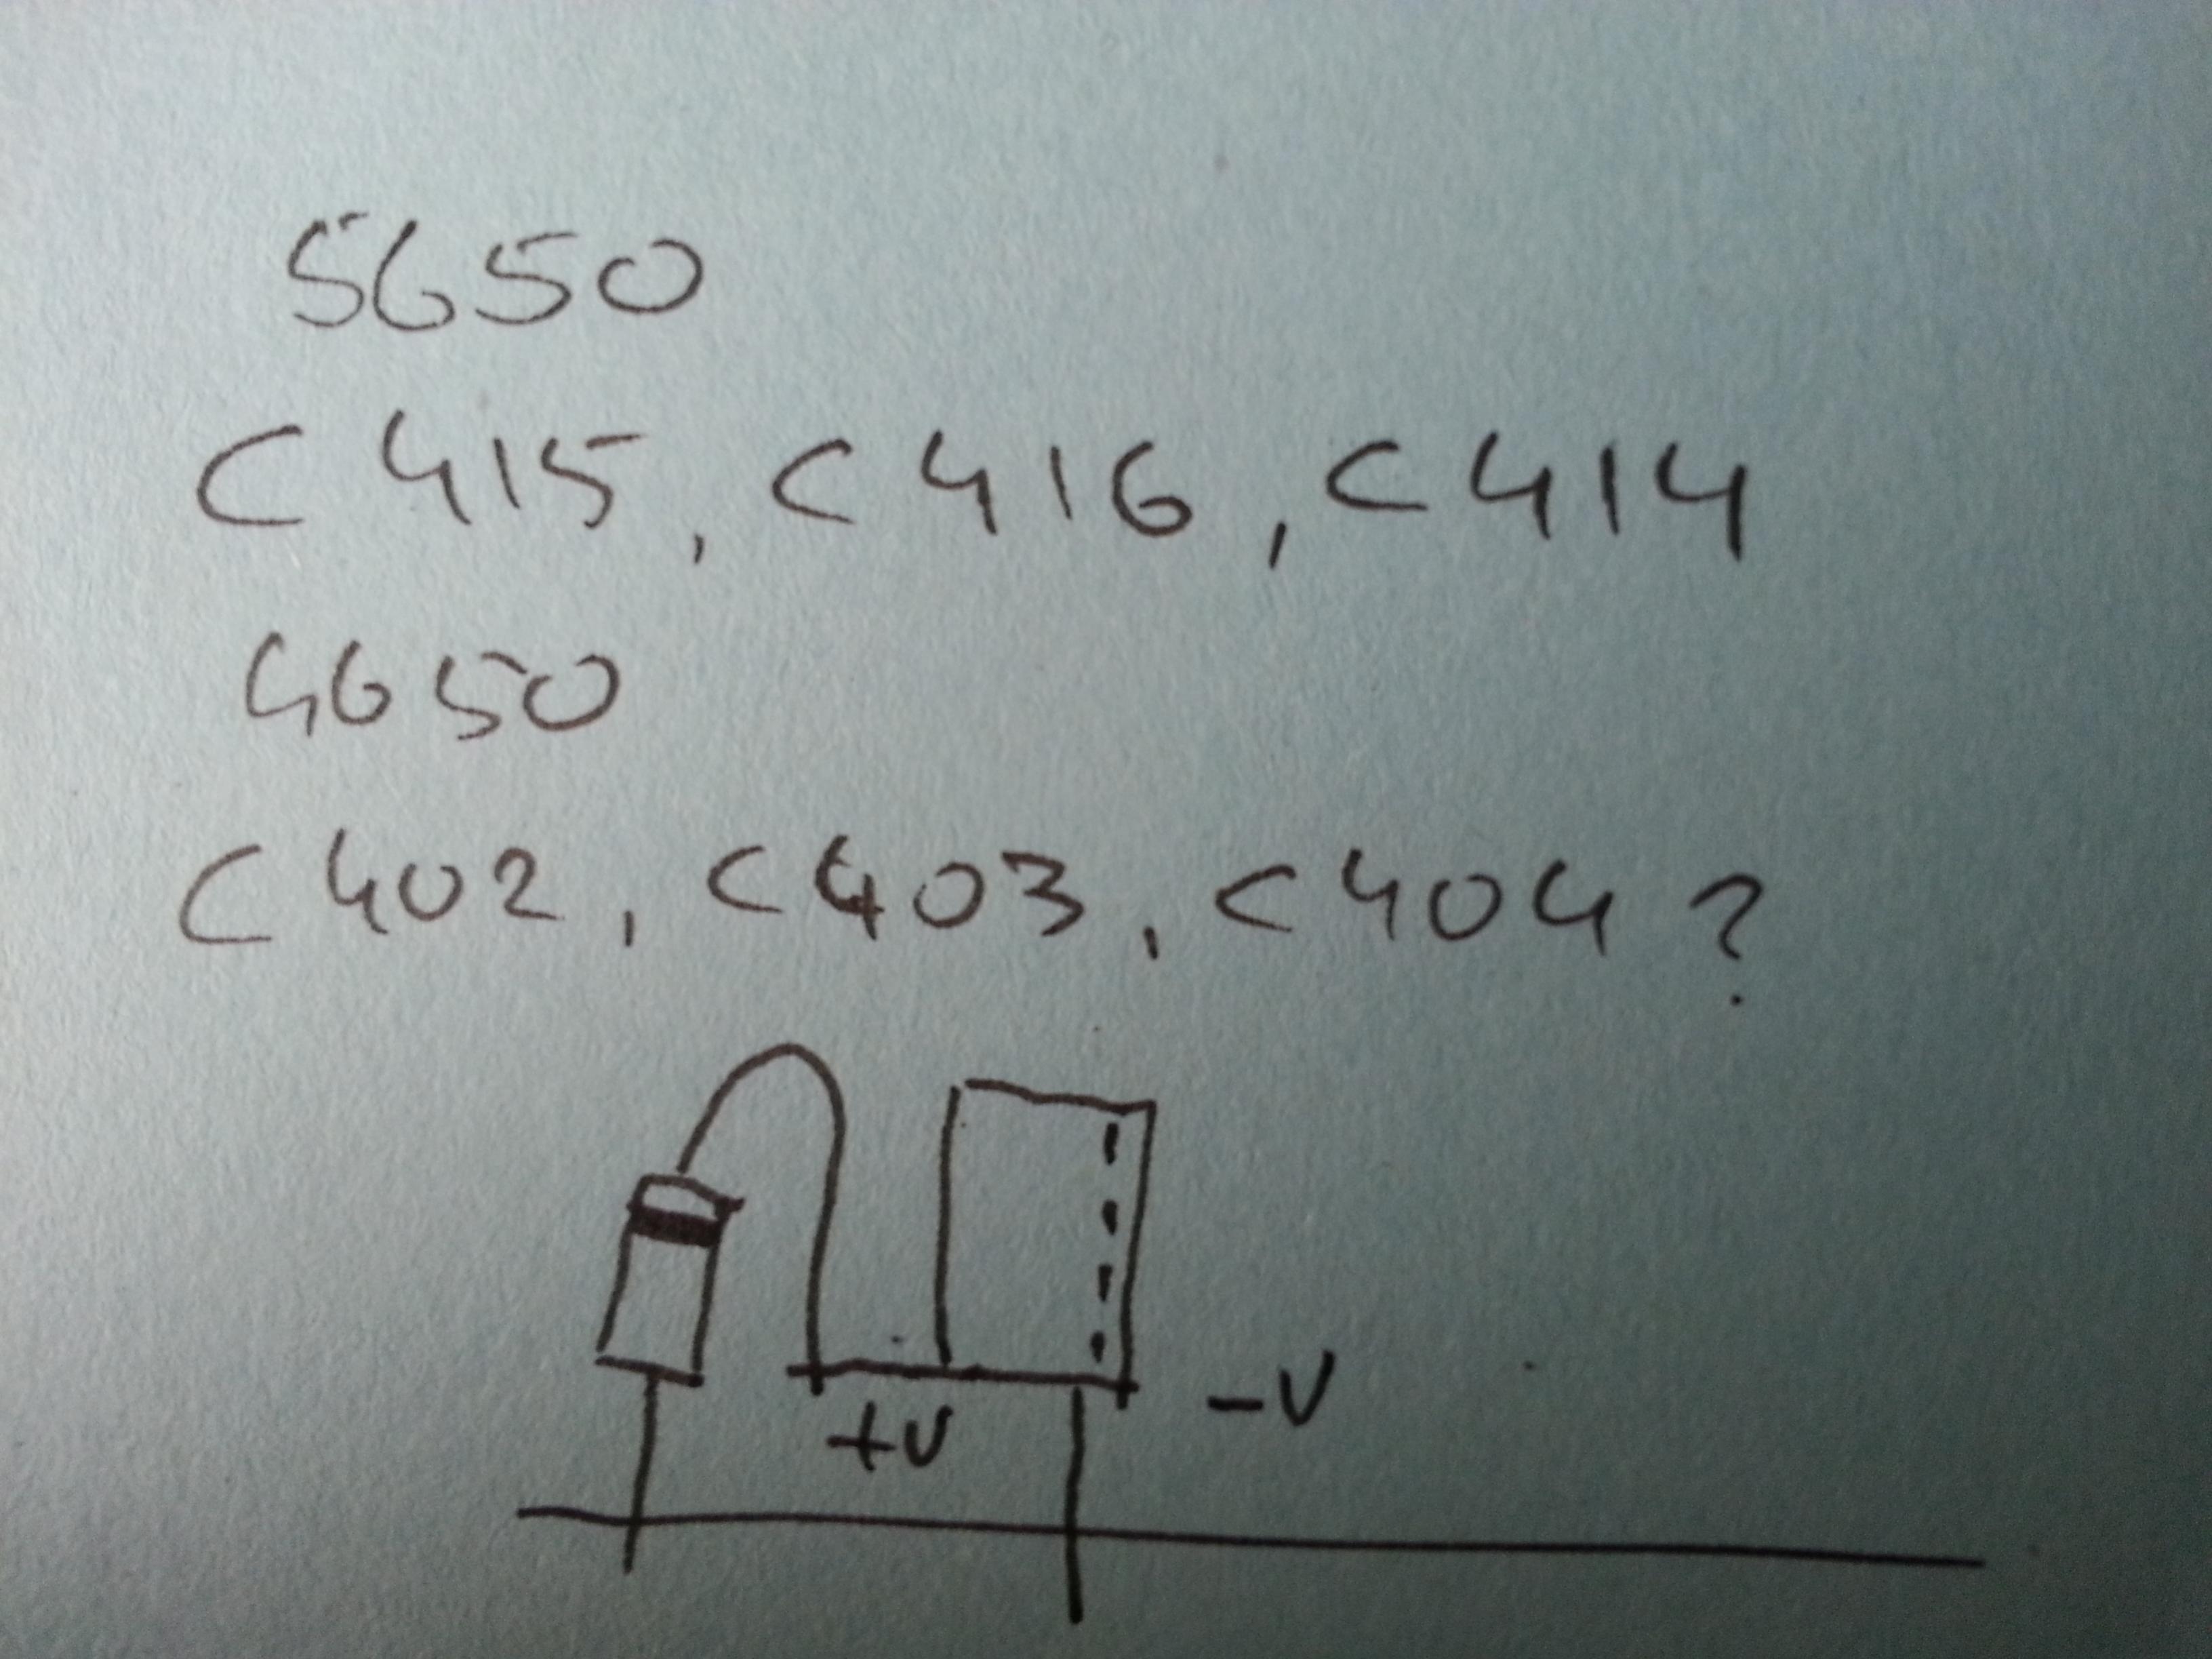 5650
C415, C416, C414
4650
C402, C403, C404?
+V -V